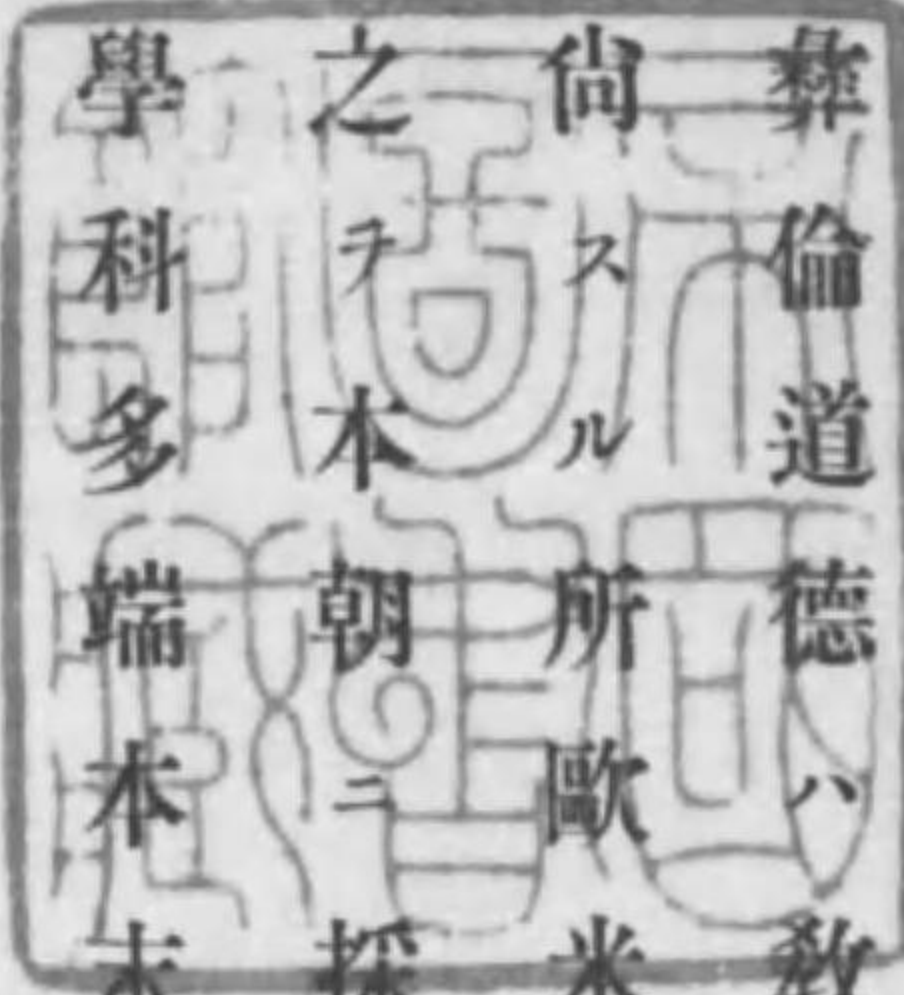 彝倫道德ハ敎
尙スル所歐米
之ヲ本朝ニ採
學科多端本末